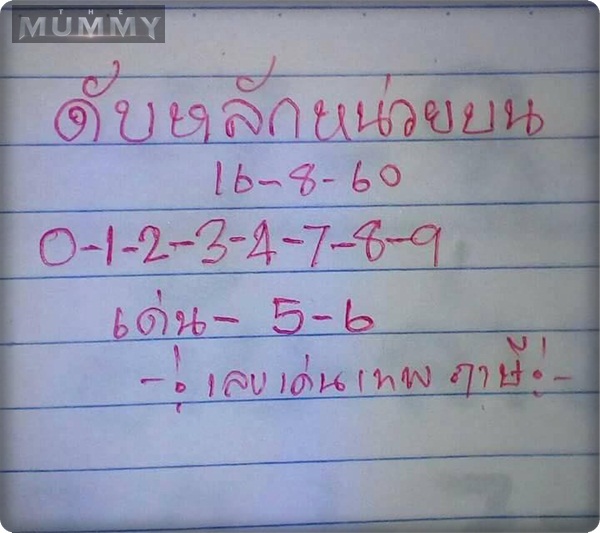 THE
MUMMY
ดับหลักหน่วยบน
16-8-60
0-1-2-3-4-7-8-9
เด่น- 5-6
-:เลขเด่นเทพ ฤาษี:-